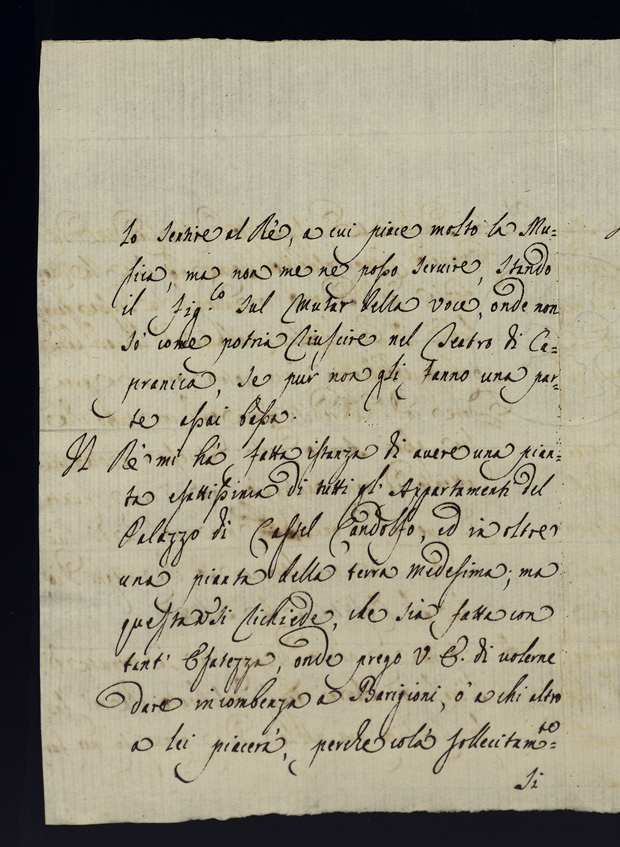 lo sentire al Rè, a cui piace molto la Mu=
sica, ma non me ne posso servire, stando
il Fig.lo sul mutar della voce, onde non
sò come potria riuscire nel Teatro di Ca=
pranica, se pur non gli fanno una par=
te assai bassa.
Il Rè mi hà fatta istanza di avere una pian=
ta esattissima di tutti gl'Appartamenti del
Palazzo di Castel Gandolfo, ed in oltre
una pianta della terra medesima; ma
questa si richiede, che sia fatta con
tant'Esatezza, onde prego V. E. di volerne
dare incombenza a Barigioni, ò a chi altro
a lei piacerà, perche colà sollecitam.to=
si